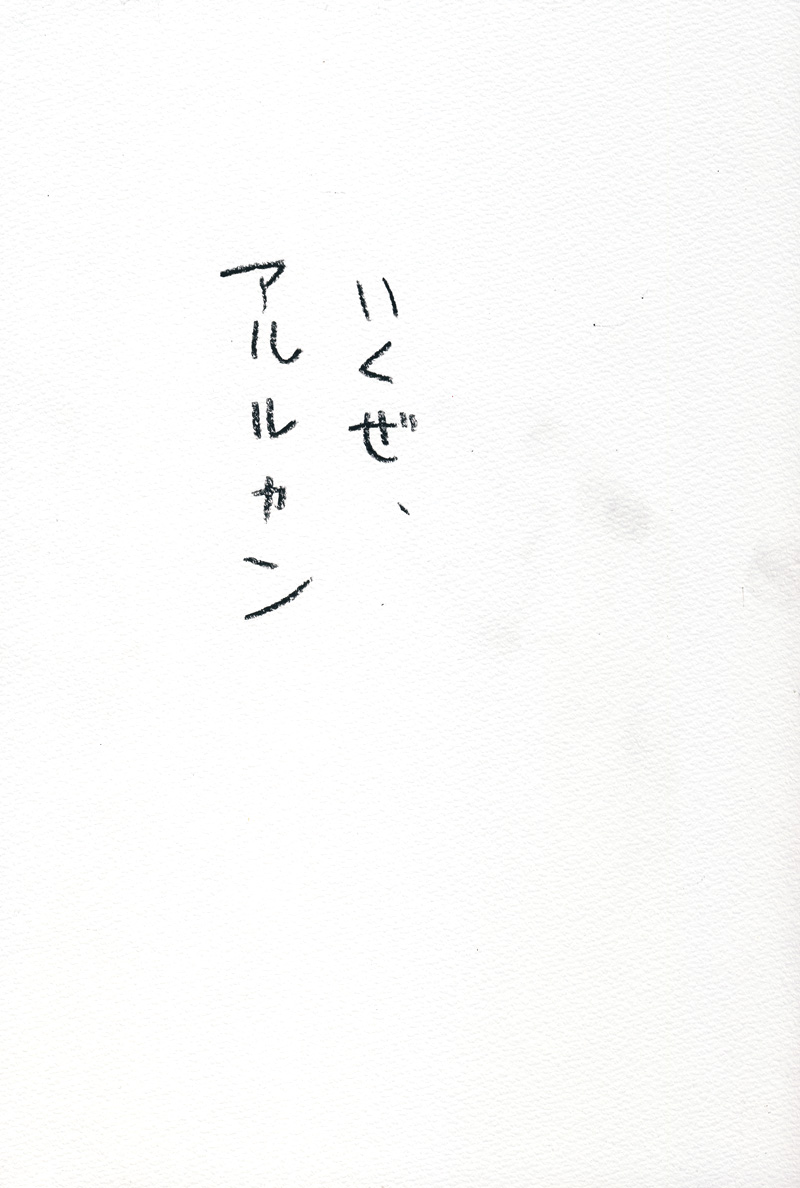 いくぜ、
アルルカン